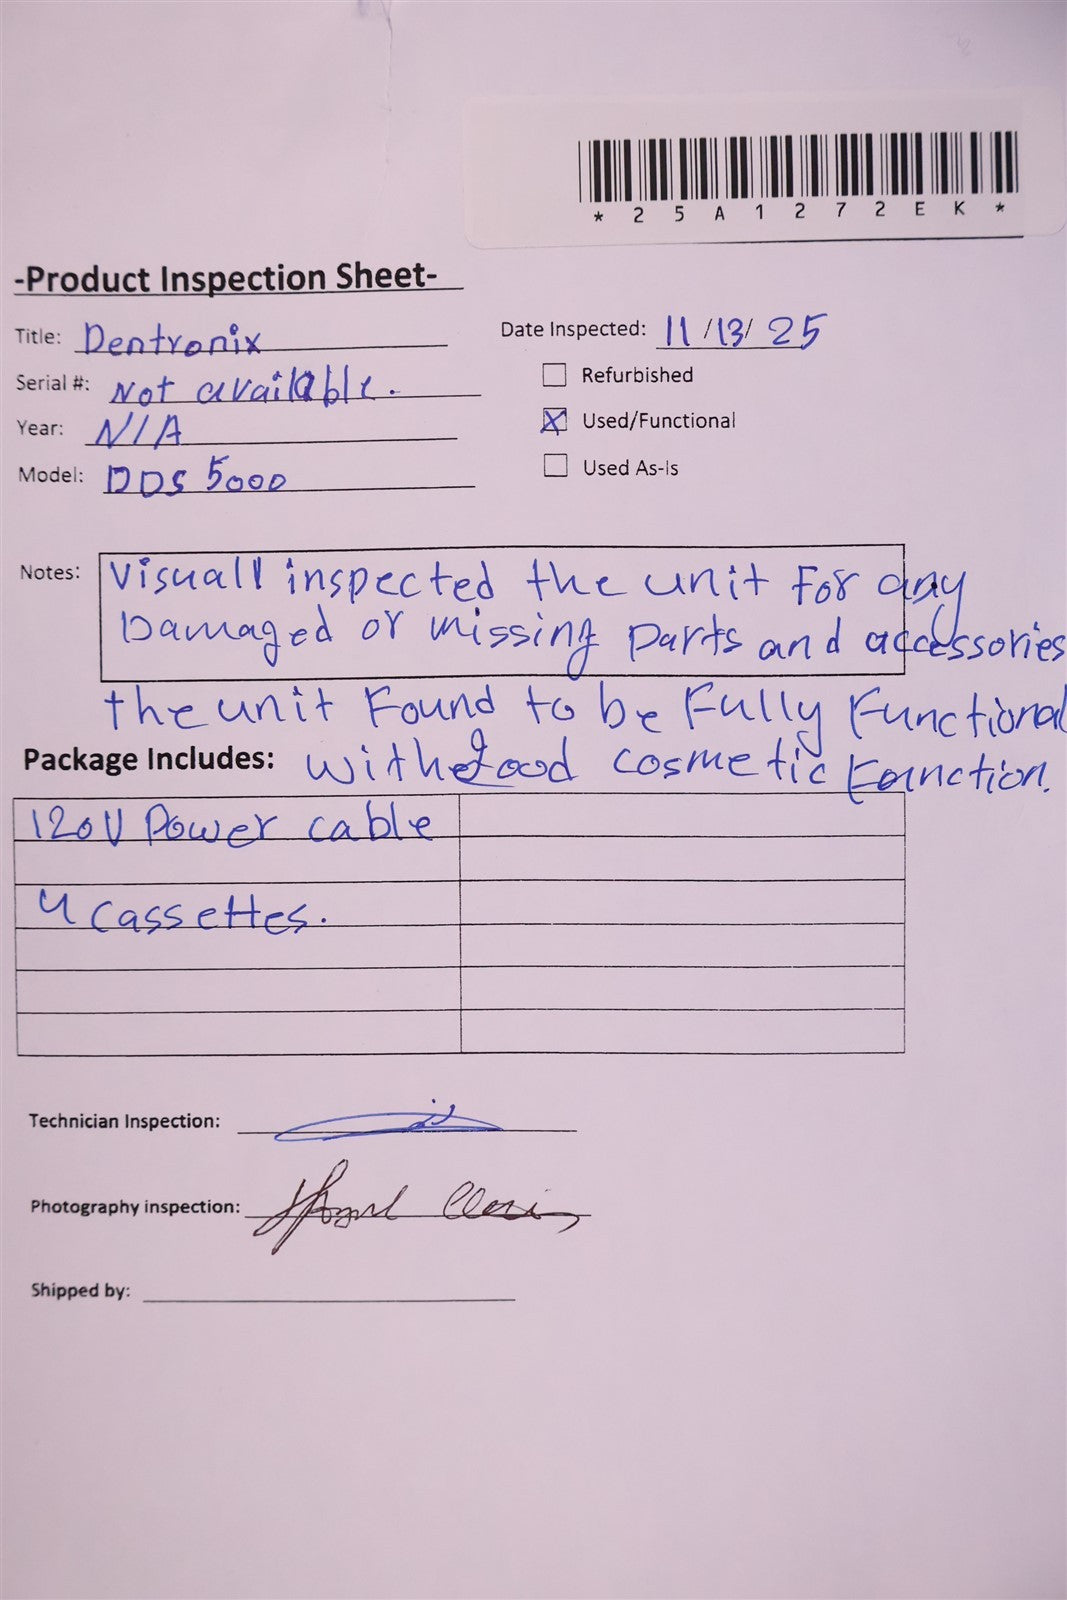 * 2 5 A 1 2 7 2 E K *
-Product Inspection Sheet-
Title: Dentronix
Date Inspected: 11/13/25
Serial #: Not available.
Refurbished
Year: N/A
Used/Functional
Model: DDS 5000
Used As-Is
Notes: Visuall inspected the unit For any
Damaged or missing parts and accessories
the unit Found to be Fully Functional
Package Includes: with Good cosmetic Function.
120V Power cable
4 cassettes.
Technician Inspection:
Photography inspection:
Shipped by: